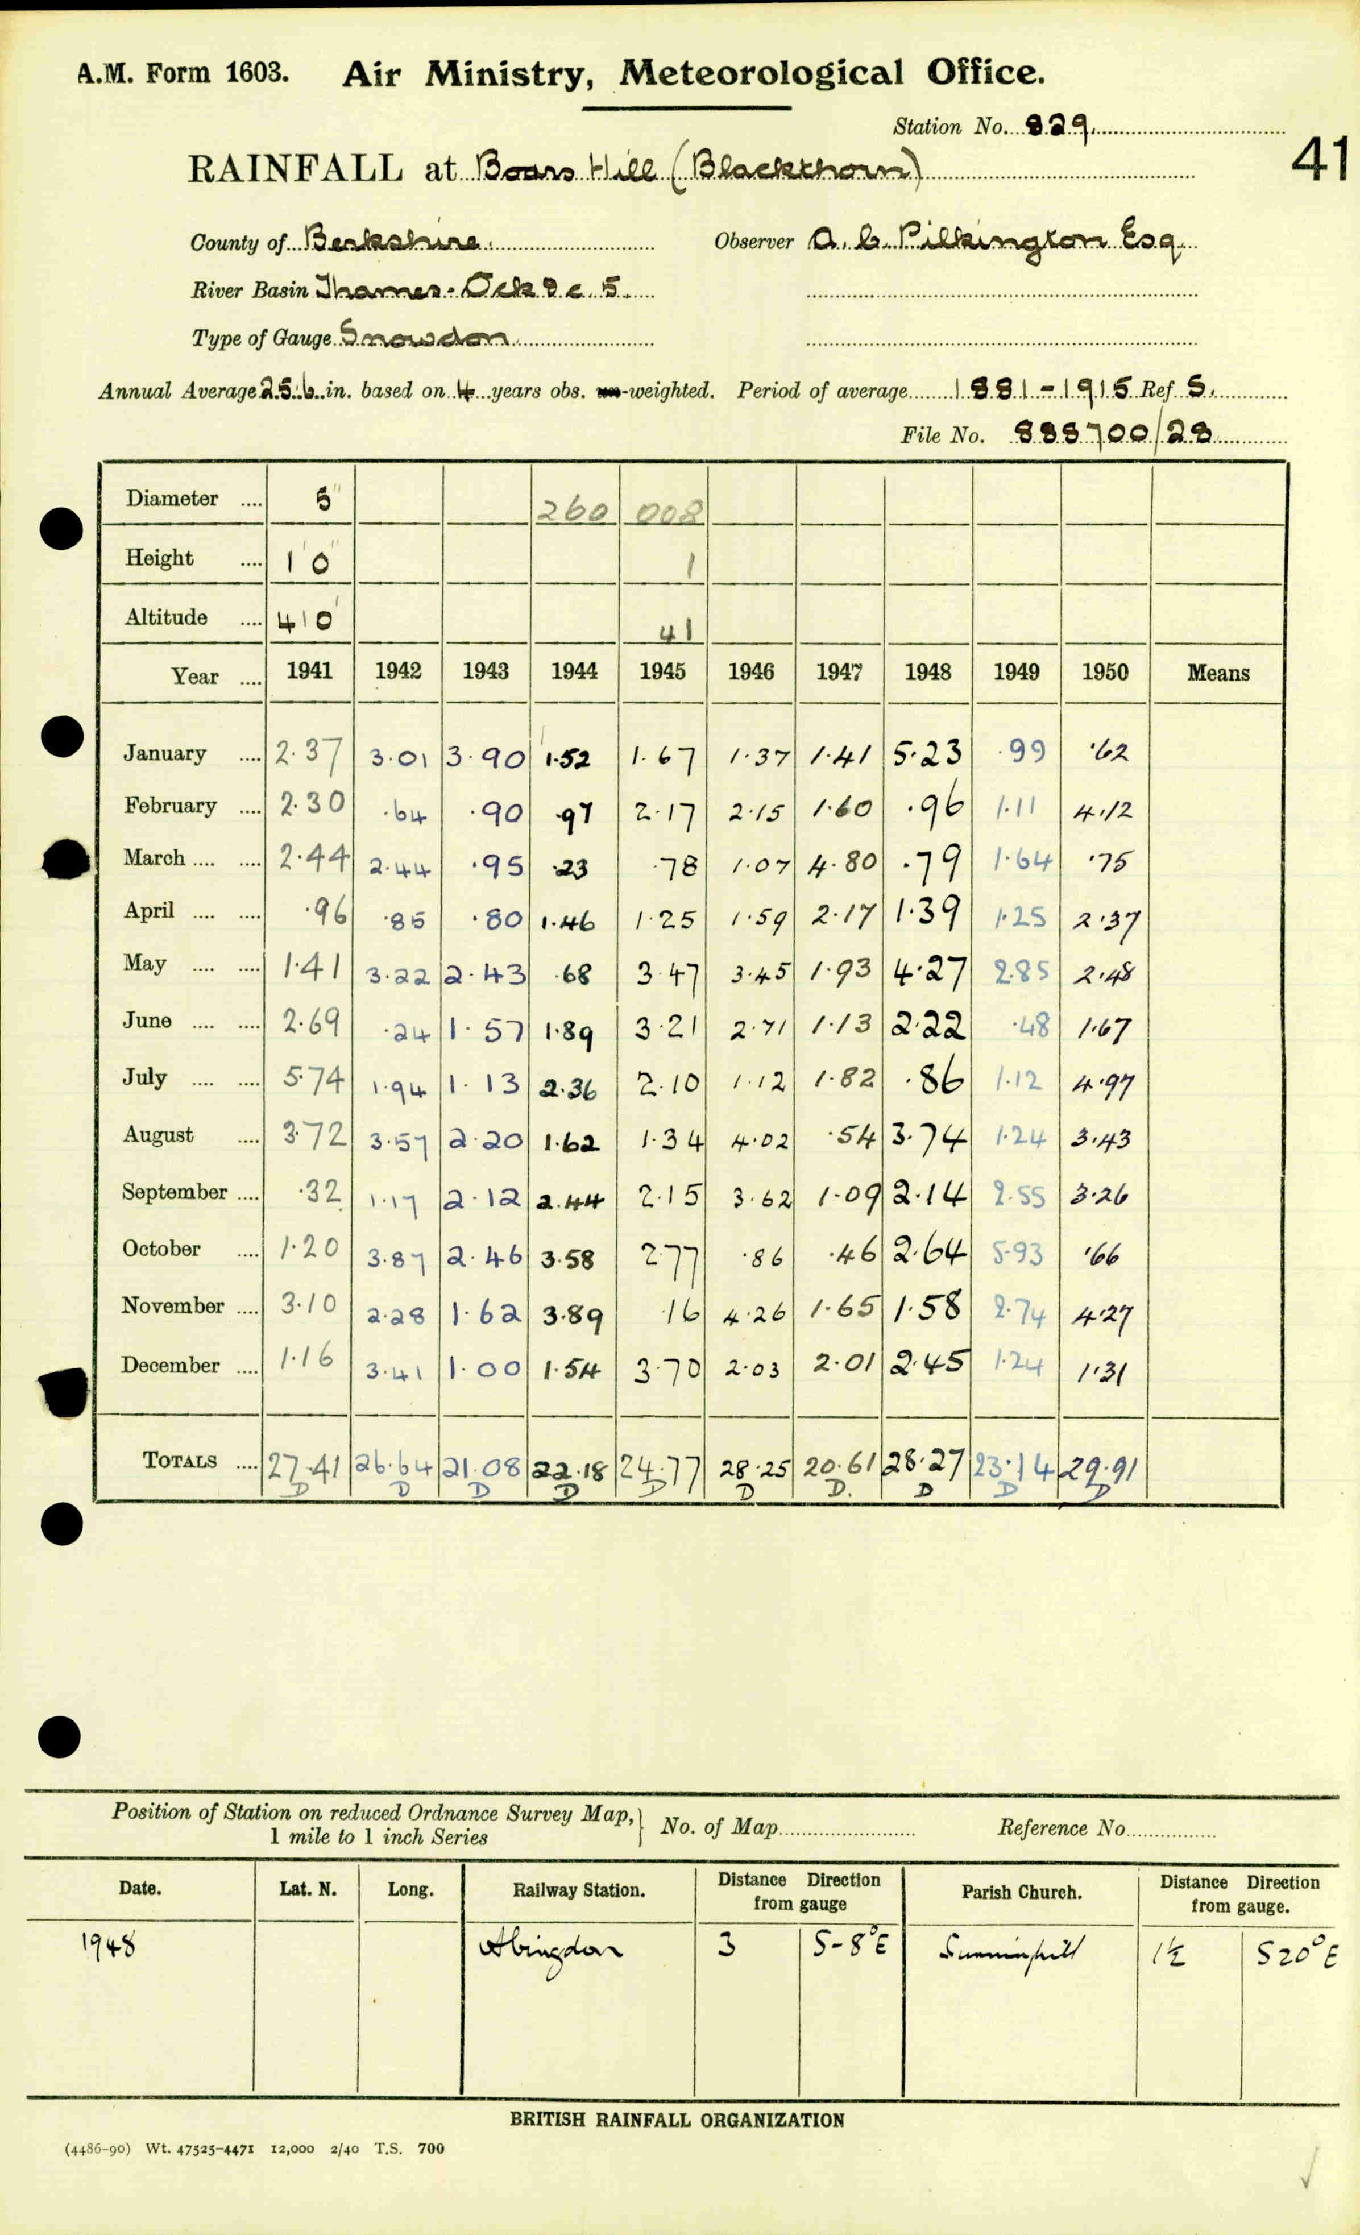 A.M. Form 1603. Air Ministry, Meteorological Office.
Station No. 829
41
RAINFALL at Boars Hill (Blackthorn)
County of Berkshire. Observer A. C. Pilkington Esq.
River Basin Thames - Ock 8 c 5.
Type of Gauge Snowdon.
Annual Average 25.6 in. based on 4 years obs. un-weighted. Period of average 1881-1915 Ref S.
File No. 888700/28
Diameter .... 5" 260 008
Height .... 1' 0" 1
Altitude .... 410' 41
Year .... 1941 1942 1943 1944 1945 1946 1947 1948 1949 1950 Means
January .... 2.37 3.01 3.90 1.52 1.67 1.37 1.41 5.23 .99 .62
February .... 2.30 .64 .90 .97 2.17 2.15 1.60 .96 1.11 4.12
March .... .... 2.44 2.44 .95 .23 .78 1.07 4.80 .79 1.64 .75
April .... .... .96 .85 .80 1.46 1.25 1.59 2.17 1.39 1.25 2.37
May .... .... 1.41 3.22 2.43 .68 3.47 3.45 1.93 4.27 2.85 2.48
June .... .... 2.69 .24 1.57 1.89 3.21 2.71 1.13 2.22 .48 1.67
July .... .... 5.74 1.94 1.13 2.36 2.10 1.12 1.82 .86 1.12 4.97
August .... 3.72 3.57 2.20 1.62 1.34 4.02 .54 3.74 1.24 3.43
September .... .32 1.17 2.12 2.44 2.15 3.62 1.09 2.14 2.55 3.26
October .... 1.20 3.87 2.46 3.58 2.77 .86 .46 2.64 5.93 .66
November .... 3.10 2.28 1.62 3.89 .16 4.26 1.65 1.58 2.74 4.27
December .... 1.16 3.41 1.00 1.54 3.70 2.03 2.01 2.45 1.24 1.31
TOTALS .... 27.41 26.64 21.08 22.18 24.77 28.25 20.61 28.27 23.14 29.91
D D D D D D D. D D D
Position of Station on reduced Ordnance Survey Map, 1 mile to 1 inch Series } No. of Map Reference No.
Date. Lat. N. Long. Railway Station. Distance Direction from gauge Parish Church. Distance Direction from gauge.
1948 Abingdon 3 S-8°E Sunninghill 1½ S20°E
BRITISH RAINFALL ORGANIZATION
(4486-90) Wt. 47525-4471 12,000 2/40 T.S. 700